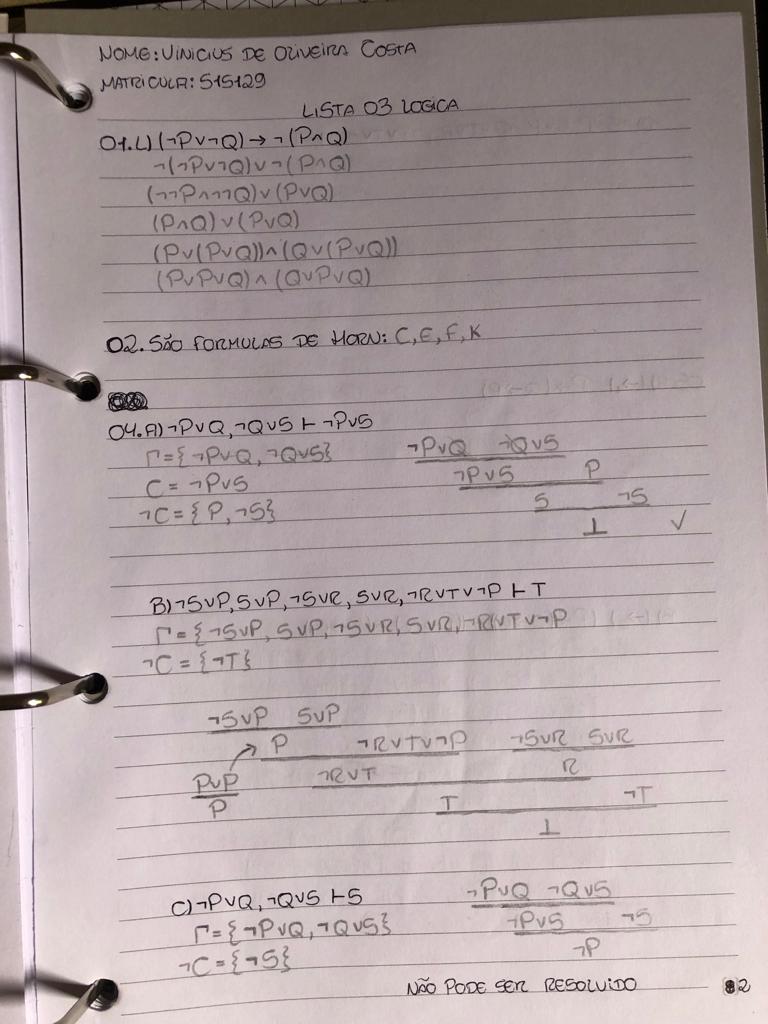 NOME: VINICIUS DE OLIVEIRA COSTA
MATRICULA: 515129
LISTA 03 LOGICA
01.L) (¬P∨¬Q) → ¬(P∧Q)
¬(¬P∨¬Q)∨¬(P∧Q)
(¬¬P∧¬¬Q)∨(P∨Q)
(P∧Q)∨(P∨Q)
(P∨(P∨Q))∧(Q∨(P∨Q))
(P∨P∨Q)∧(Q∨P∨Q)
02. SÃO FORMULAS DE HORN: C, E, F, K
04.A) ¬P∨Q, ¬Q∨S ⊢ ¬P∨S
Γ={¬P∨Q, ¬Q∨S}
C = ¬P∨S
¬C = {P, ¬S}
¬P∨Q ¬Q∨S
¬P∨S P
S ¬S
⊥ ✓
B) ¬S∨P, S∨P, ¬S∨R, S∨R, ¬R∨T∨¬P ⊢ T
Γ={¬S∨P, S∨P, ¬S∨R, S∨R, ¬R∨T∨¬P
¬C = {¬T}
¬S∨P S∨P
P ¬R∨T∨¬P ¬S∨R S∨R
P∨P ¬R∨T R
P T ¬T
⊥
C) ¬P∨Q, ¬Q∨S ⊢ S
Γ={¬P∨Q, ¬Q∨S}
¬C = {¬S}
¬P∨Q ¬Q∨S
¬P∨S ¬S
¬P
NÃO PODE SER RESOLVIDO
2